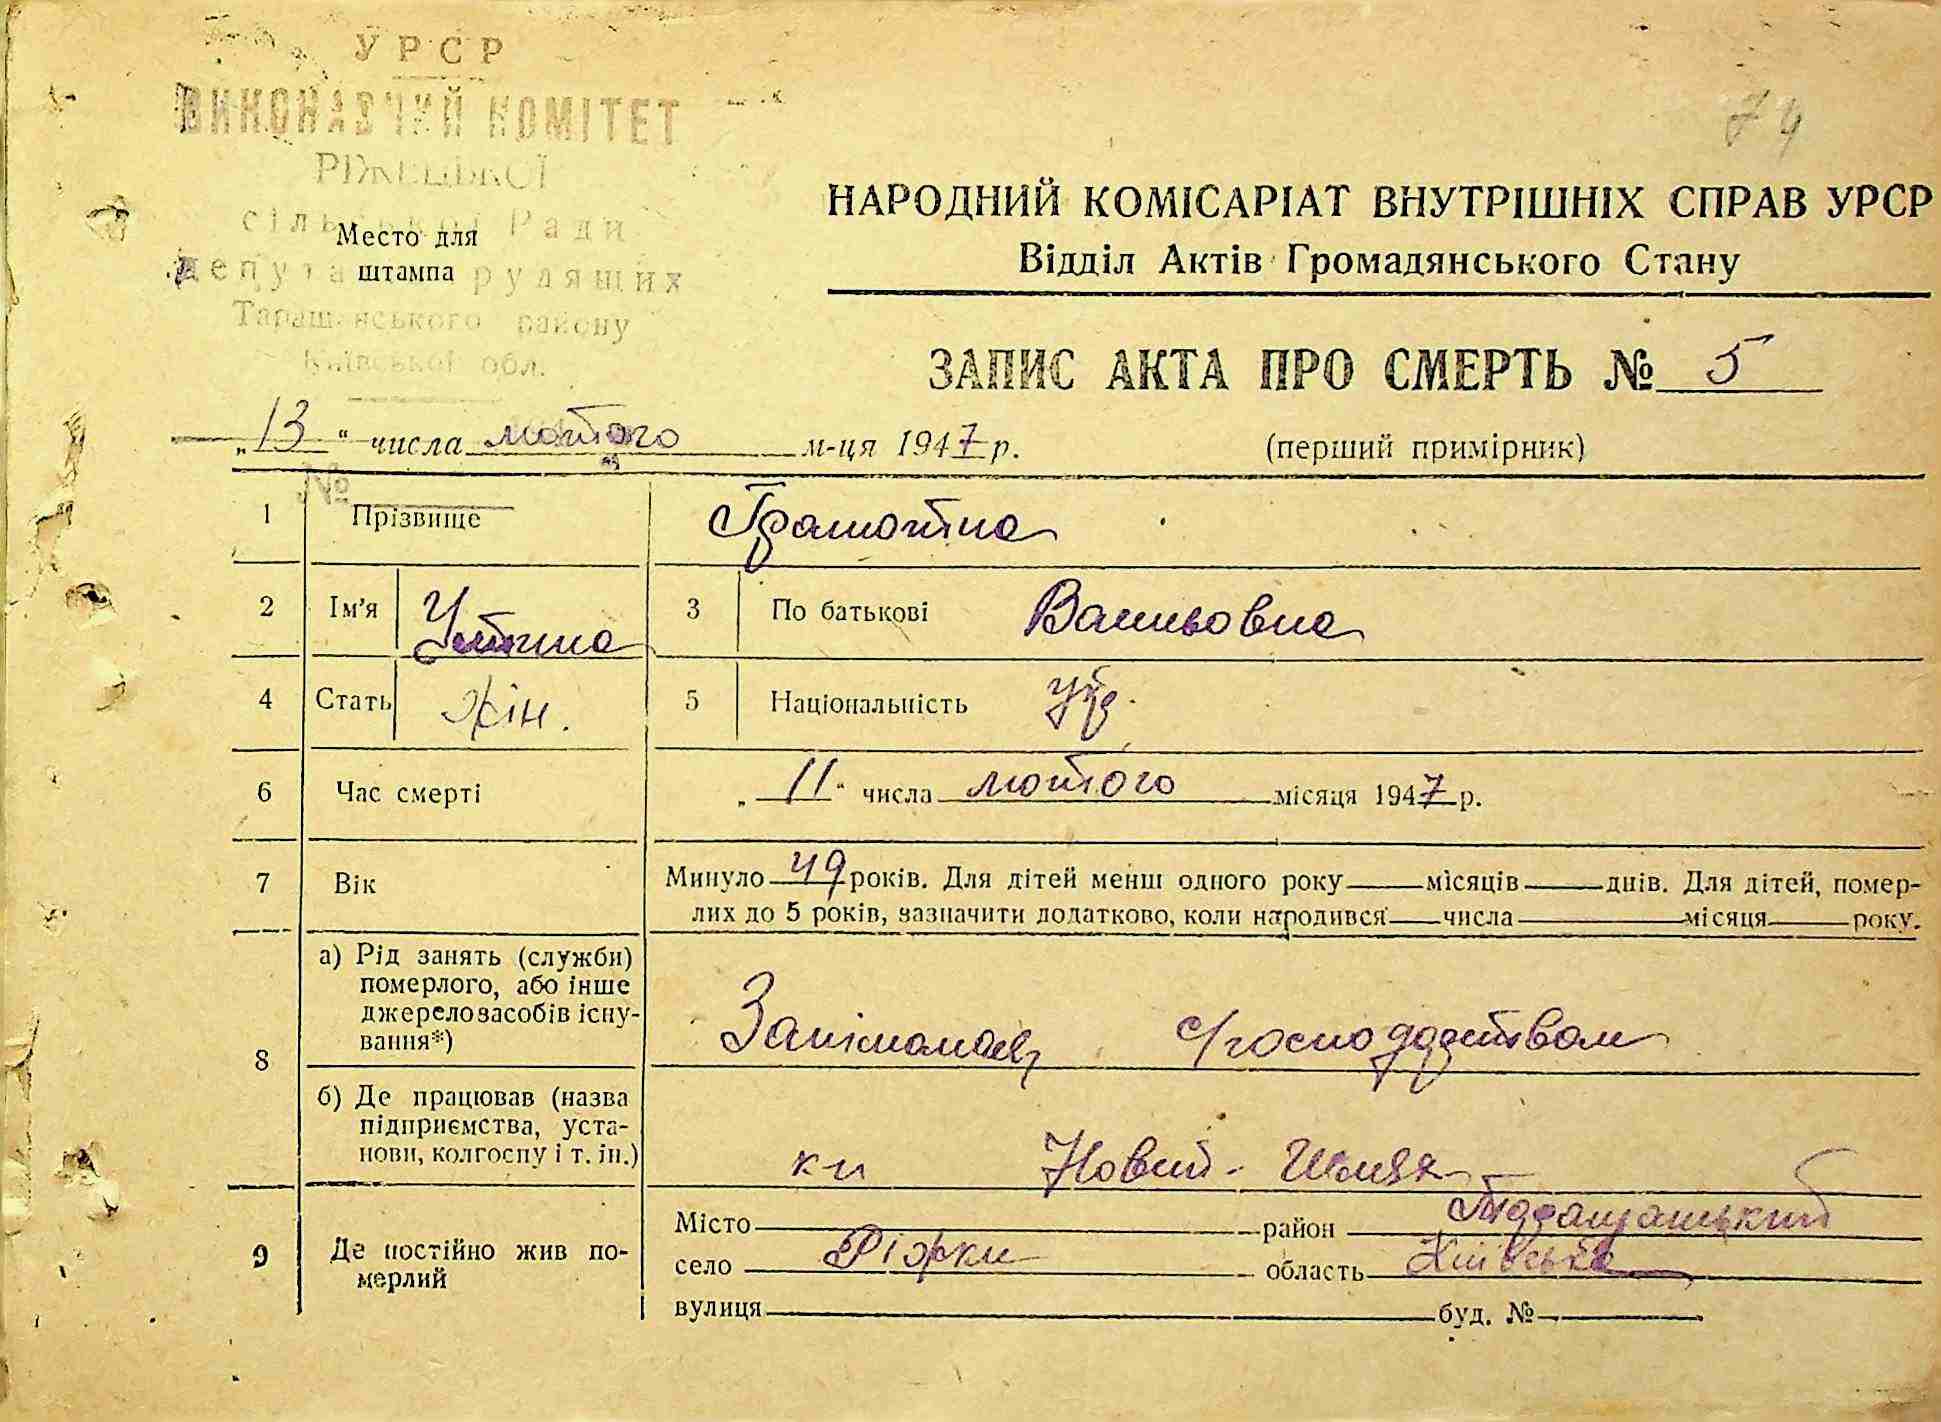 74
УРСР
ВИКОНАВЧИЙ КОМІТЕТ
РІЖЕЦЬКОЇ
сільської Ради
депутатів трудящих
Таращанського району
Київської обл.
Место для
штампа
НАРОДНИЙ КОМІСАРІАТ ВНУТРІШНІХ СПРАВ УРСР
Відділ Актів Громадянського Стану
ЗАПИС АКТА ПРО СМЕРТЬ № 5
„13“ числа лютого м-ця 1947 р.
(перший примірник)
№
1 Прізвище Грамотна
2 Ім’я Устина 3 По батькові Васильовна
4 Стать жін. 5 Національність Укр.
6 Час смерті „11“ числа лютого місяця 1947 р.
7 Вік Минуло 49 років. Для дітей менш одного року місяців днів. Для дітей, помер-
лих до 5 років, зазначити додатково, коли народився числа місяця року.
8 а) Рід занять (служби)
померлого, або інше
джерело засобів існу-
вання*)
с/господарством
б) Де працював (назва
підприємства, уста-
нови, колгоспу і т. ін.)
Новий-Шлях
9 Де постійно жив по-
мерлий
Місто район Таращанський
село Ріжки область Київська
вулиця буд. №